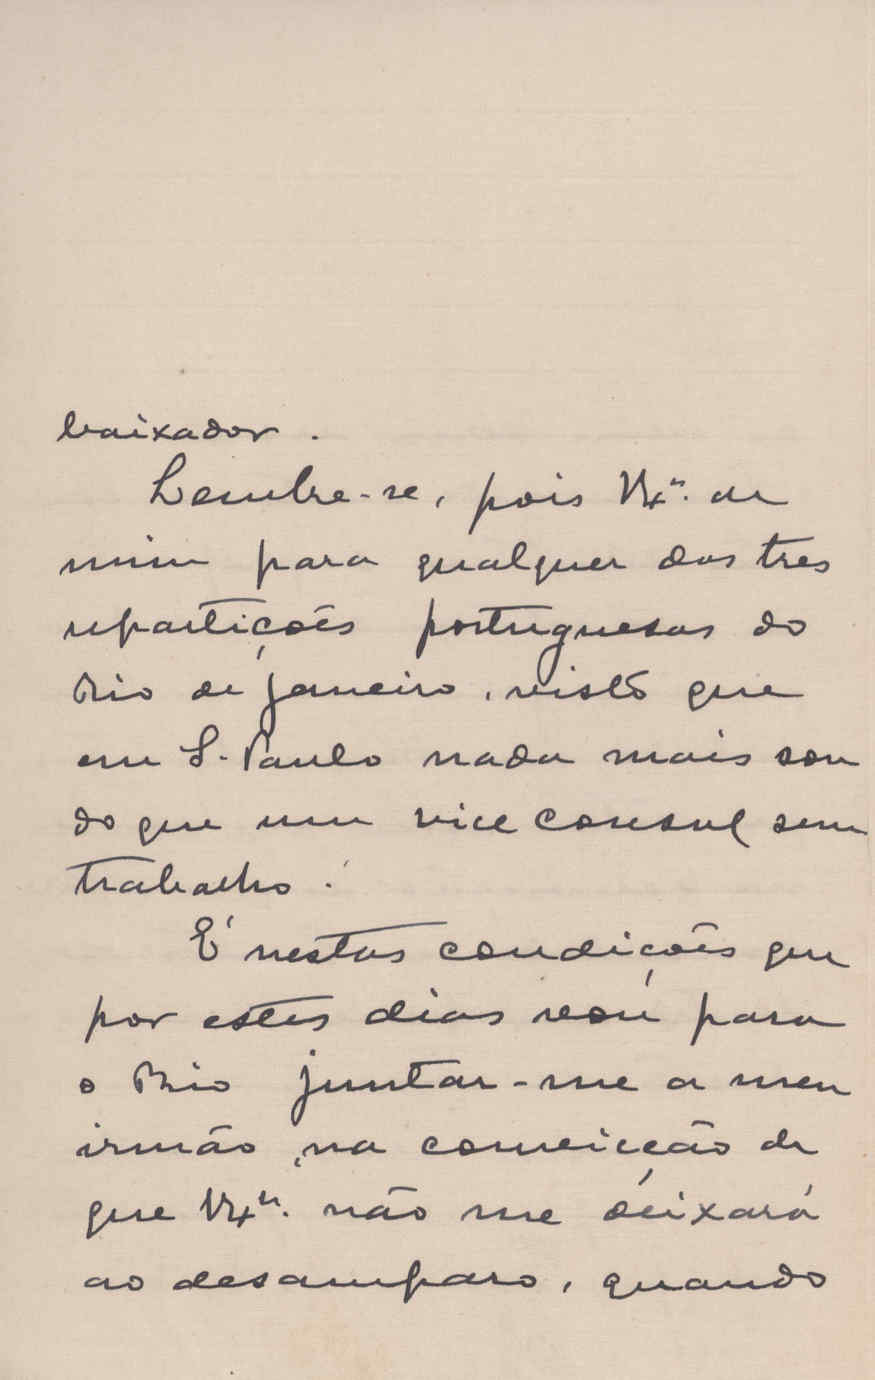 baixador.
Lembre-se, pois V. Exª. de
mim para qualquer das tres
repartições portuguesas do
Rio de Janeiro, visto que
em S. Paulo nada mais sou
do que um vice consul sem
trabalho.
É nestas condições que
por estes dias vou para
o Rio juntar-me a meu
irmão, na convicção de
que V. Exª. não me deixará
ao desamparo, quando